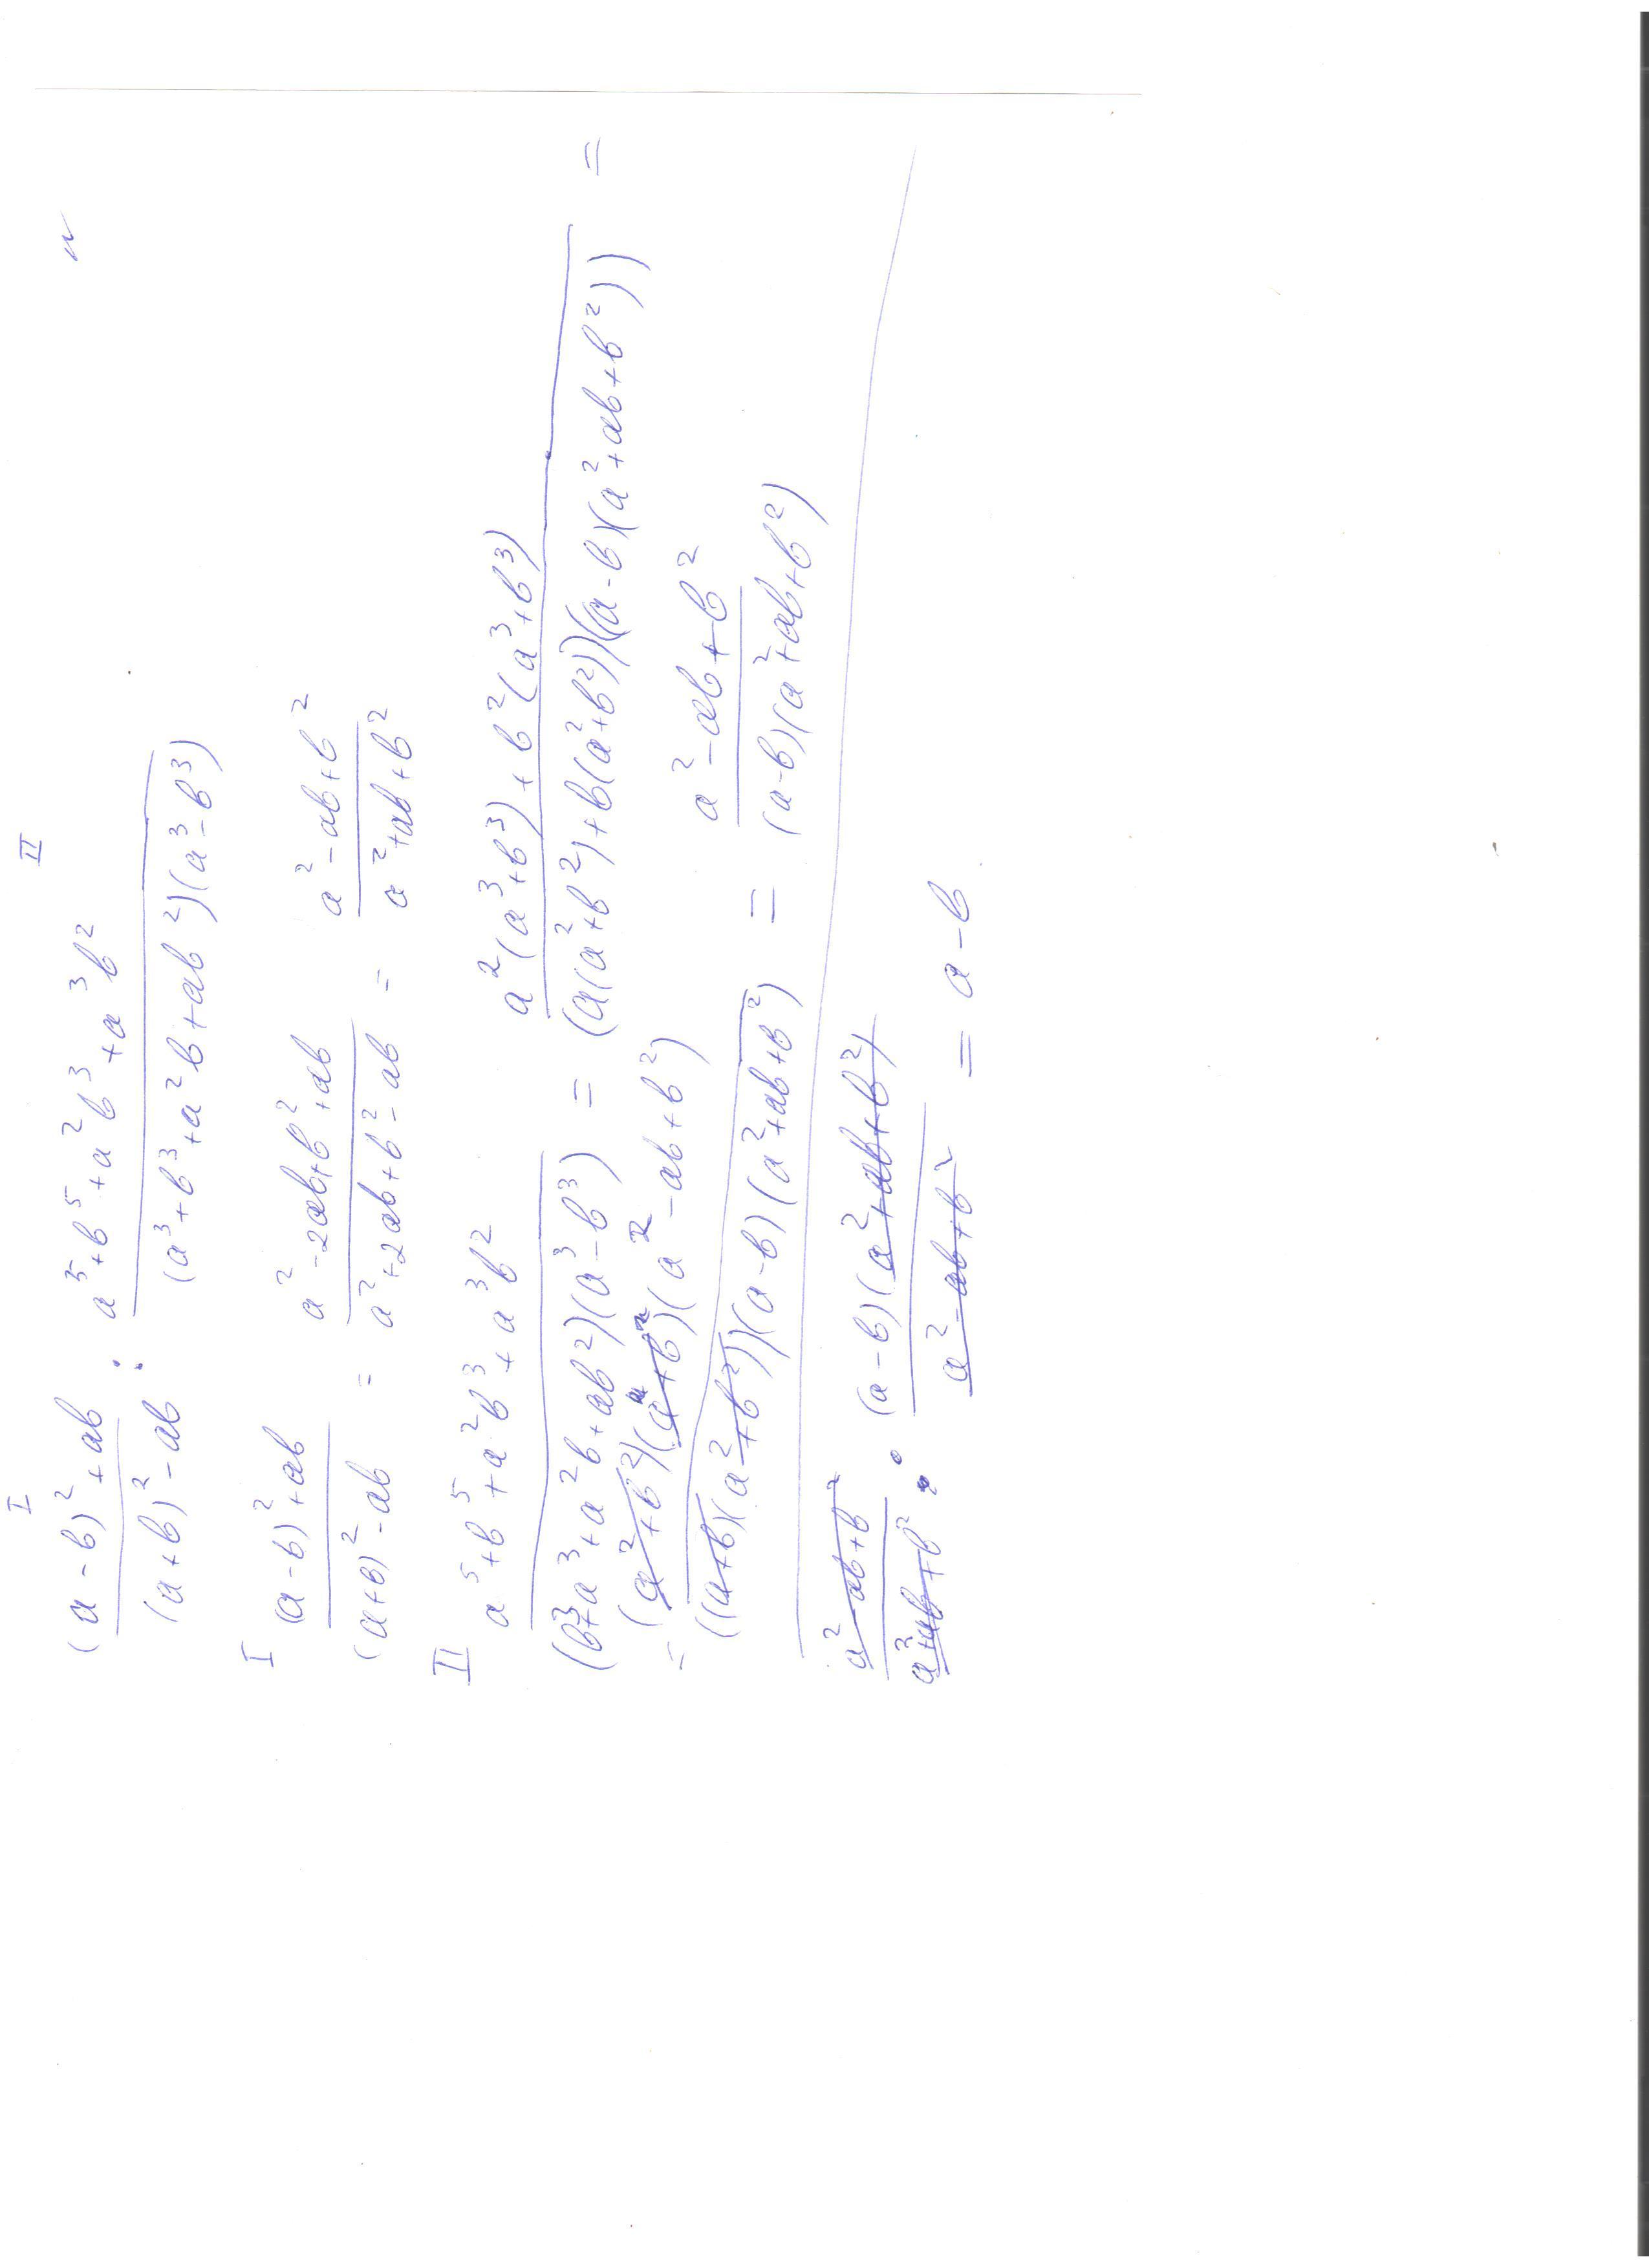 I II
(a-b)²+ab / (a+b)²-ab : a⁵+b⁵+a²b³+a³b² / (a³+b³+a²b+ab²)(a³-b³)
I (a-b)²+ab / (a+b)²-ab = a²-2ab+b²+ab / a²+2ab+b²-ab = a²-ab+b² / a²+ab+b²
II a⁵+b⁵+a²b³+a³b² / (b³+a³+a²b+ab²)(a³-b³) = a²(a³+b³)+b²(a³+b³) / (a(a²+b²)+b(a²+b²))((a-b)(a²+ab+b²)) =
= (a²+b²)(a+b)(a²-ab+b²) / ((a+b)(a²+b²))(a-b)(a²+ab+b²) = a²-ab+b² / (a-b)(a²+ab+b²)
a²-ab+b² / a²+ab+b² : (a-b)(a²+ab+b²) / a²-ab+b² = a-b